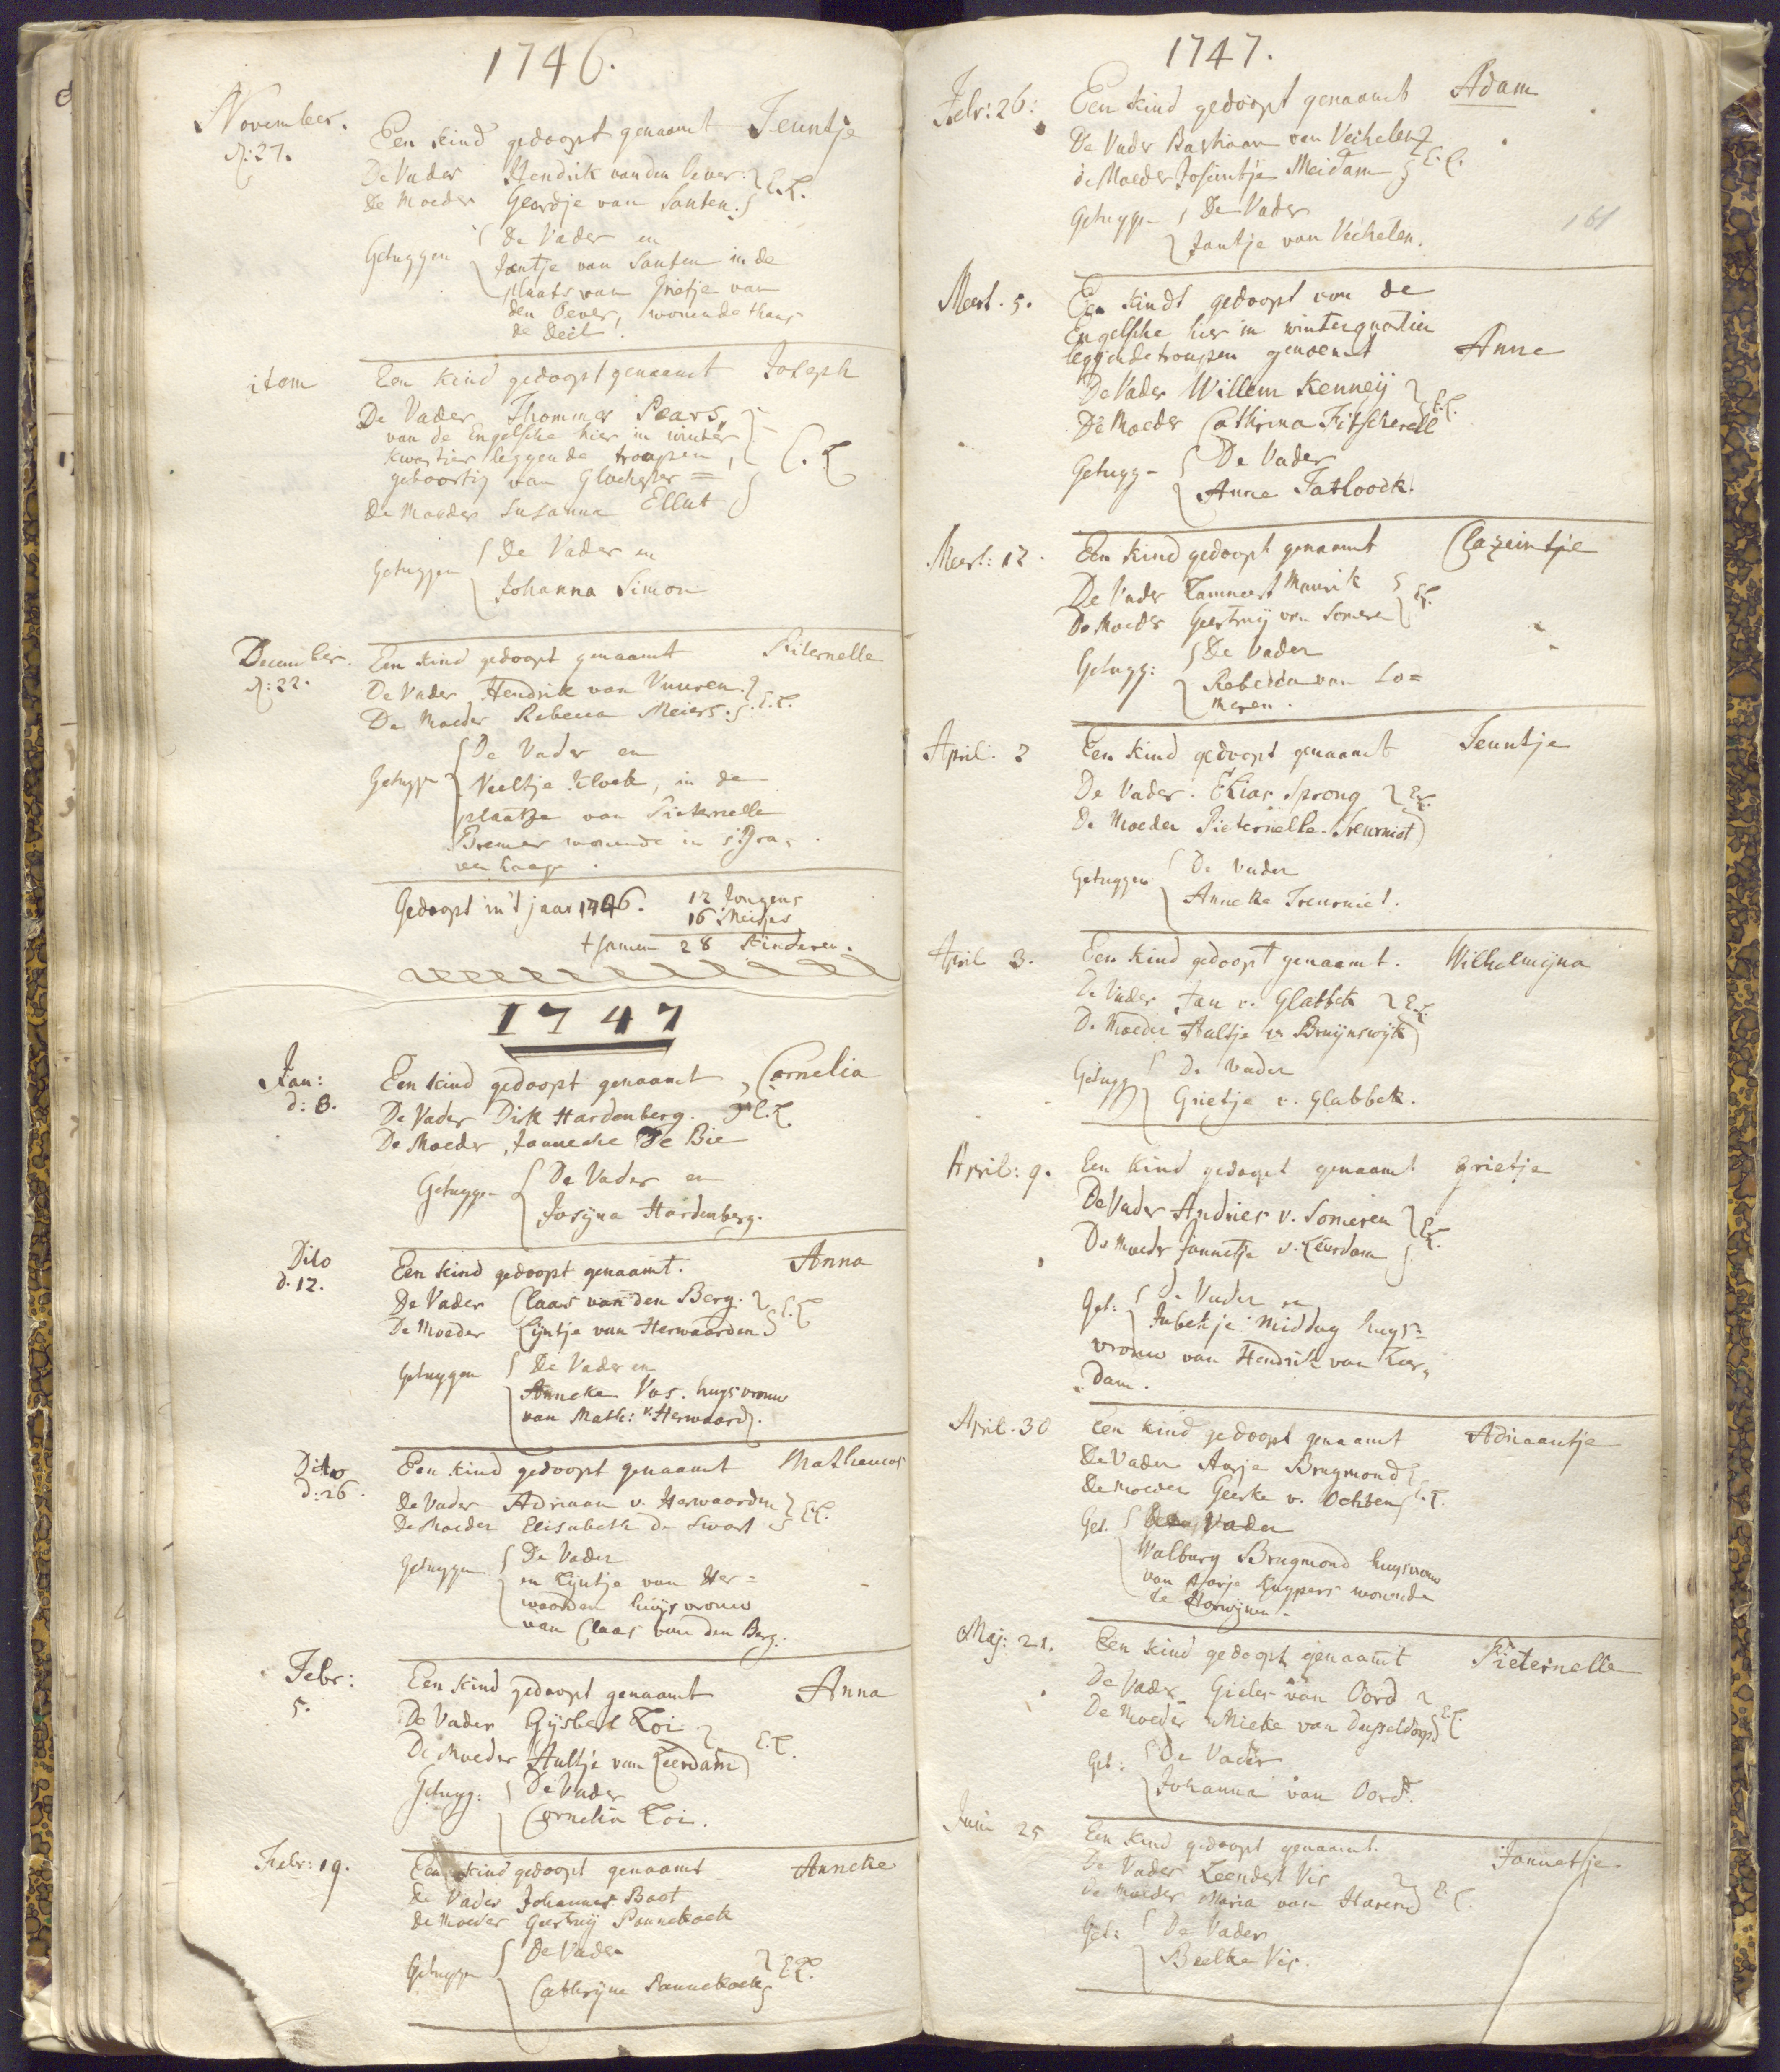 1746.
November.
d: 27.
Een kind gedoopt genaamt Teuntje
De Vader Hendrik van den Oever. E.L.
de Moeder Geerdje van Santen.
Getuygen De Vader en
Jantje van Santen in de
plaats van Jnetje van
den Oever, wonende thans
de Deil.
item Een kind gedoopt genaamt Joseph
De Vader Thommes Pears,
van de Engelsche hier in winter
kwartier leggende troupen,
geboortig van Glochester = E.L
de Moeder Susanna Ellut
Getuygen De Vader en
Johanna Simon
December.
d: 22.
Een kind gedoopt genaamt Piternelle
De Vader Hendrik van Vuuren.
De Moeder Rebecca Meiers. E.L.
Getuyge De Vader en
Neeltje Kloek, in de
plaatze van Pieternelle
Bremer wonende in s'Gra,
ven haage.
Gedoopt in't jaar 1746. 12 Jongens
16 Meisjes
tsamen 28 Kinderen.
1747
Jan:
d: 8.
Een kind gedoopt genaamt, Cornelia
De Vader Dirk Hardenberg. E.L
De Moeder, Janneche De Bie
Getuygen De Vader en
Josyna Hardenberg.
Dito
d. 12.
Een kind gedoopt genaamt. Anna
De Vader Claas van den Berg.
De Moeder Lijntje van Herwaarden E.L
Getuygen De Vader en
Anneke Vos. huysvrouw
van Math: v. Herwaard.
Dito
d: 26.
Een kind gedoopt genaamt Matheuws
De Vader Adriaan v. Herwaarden
De Moeder Elisabeth de Swart E.L.
Getuygen De Vader
en Lijntje van Her=
waarden huijsvrouw
van Claas van den Berg.
Febr:
5.
Een kind gedoopt genaamt Anna
De Vader Gijsbert Loi
De Moeder Aultje van Leerdam E.L.
Getuyg: De Vader
Cornelia Loi.
Febr: 19.
Een kind gedoopt genaamt Anneke
de Vader Johannes Baot
de Moeder Geertruij Pannekoek
Getuyge De Vader
Cathrijne Pannekoek E.L.
1747.
Febr: 26:
Een kind gedoopt genaamt Adam
De Vader Bastiaan van Vechelen
de Moeder Josüntje Meidam E.L.
Getuyge De Vader
Jantje van Vechelen.
161
Meert. 5.
Een kindt gedoopt von de
Engelsche hier in winterquatier
leggende troupen genoemt Anne
De Vader Willem Kenneij
De Moeder Cathrina Fitscherell E.L.
Getuyg- De Vader
Anne Tatloock.
Meert: 12.
Een kind gedoopt genaamt Clazeintje
De Vader Lammert Maurik
De Moeder Geertruij van Somere E.L.
Getuyg: De Vader
Rebecca van So=
meren.
April: 2
Een kind gedoopt genaamt Teuntje
De Vader. Elias Sprong
De Moeder Pieternelle Treurniet E.L.
Getuygen De Vader
Anneke Treurniet.
April 3.
Een kind gedoopt genaamt. Wilhelmijna
De Vader Jan v. Glabbek
De Moeder Aaltje v. Bruijnswijk E.L.
Getuyg De Vader
Grietje v. Glabbek.
April: 9.
Een kind gedoopt genaamt Grietje
De Vader Andries v. Someren
De Moeder Jannetje v. Leerdam E.L.
Get: De Vader en
Jubekje Middag huys=
vrouw van Hendrik van Leer,
dam.
April. 30
Een kind gedoopt genaamt Adriaantje
De Vader Aarje Brugmond
De Moeder Geerke v. Ochten E.L.
Get. Vader
Walburg Brugmond huysvrouw
van Aarje Kuypers woonende
te Herwijnen.
Maj: 21.
Een kind gedoopt genaamt Pieternelle
De Vader Gieles van Oord
De Moeder Mieke van Dusseldorp E.L.
Get: De Vader
Johanna van Oord.
Juni 25
Een kind gedoopt genaamt. Jannetje.
De Vader Leendert Vis
de Moeder Maria van Haren E.L.
Get: De Vader
Beelke Vis.